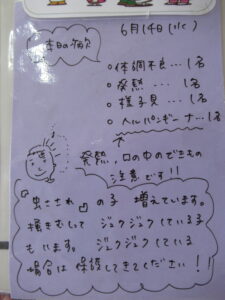 6月14日(火)
本日の病欠
○体調不良…1名
○発熱…1名
○様子見…1名
○ヘルパンギーナ…1名
発熱,口の中のできもの
注意です!!
『虫さされ』の子 増えています。
掻きむしって ジュクジュクしている子
もいます。 ジュクジュクしている
場合は 保護してきてください!!